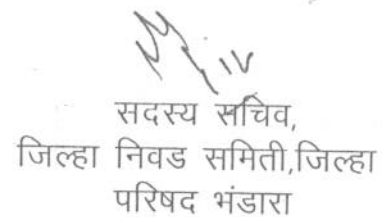 सदस्य सचिव,
जिल्हा निवड समिती,जिल्हा
परिषद भंडारा